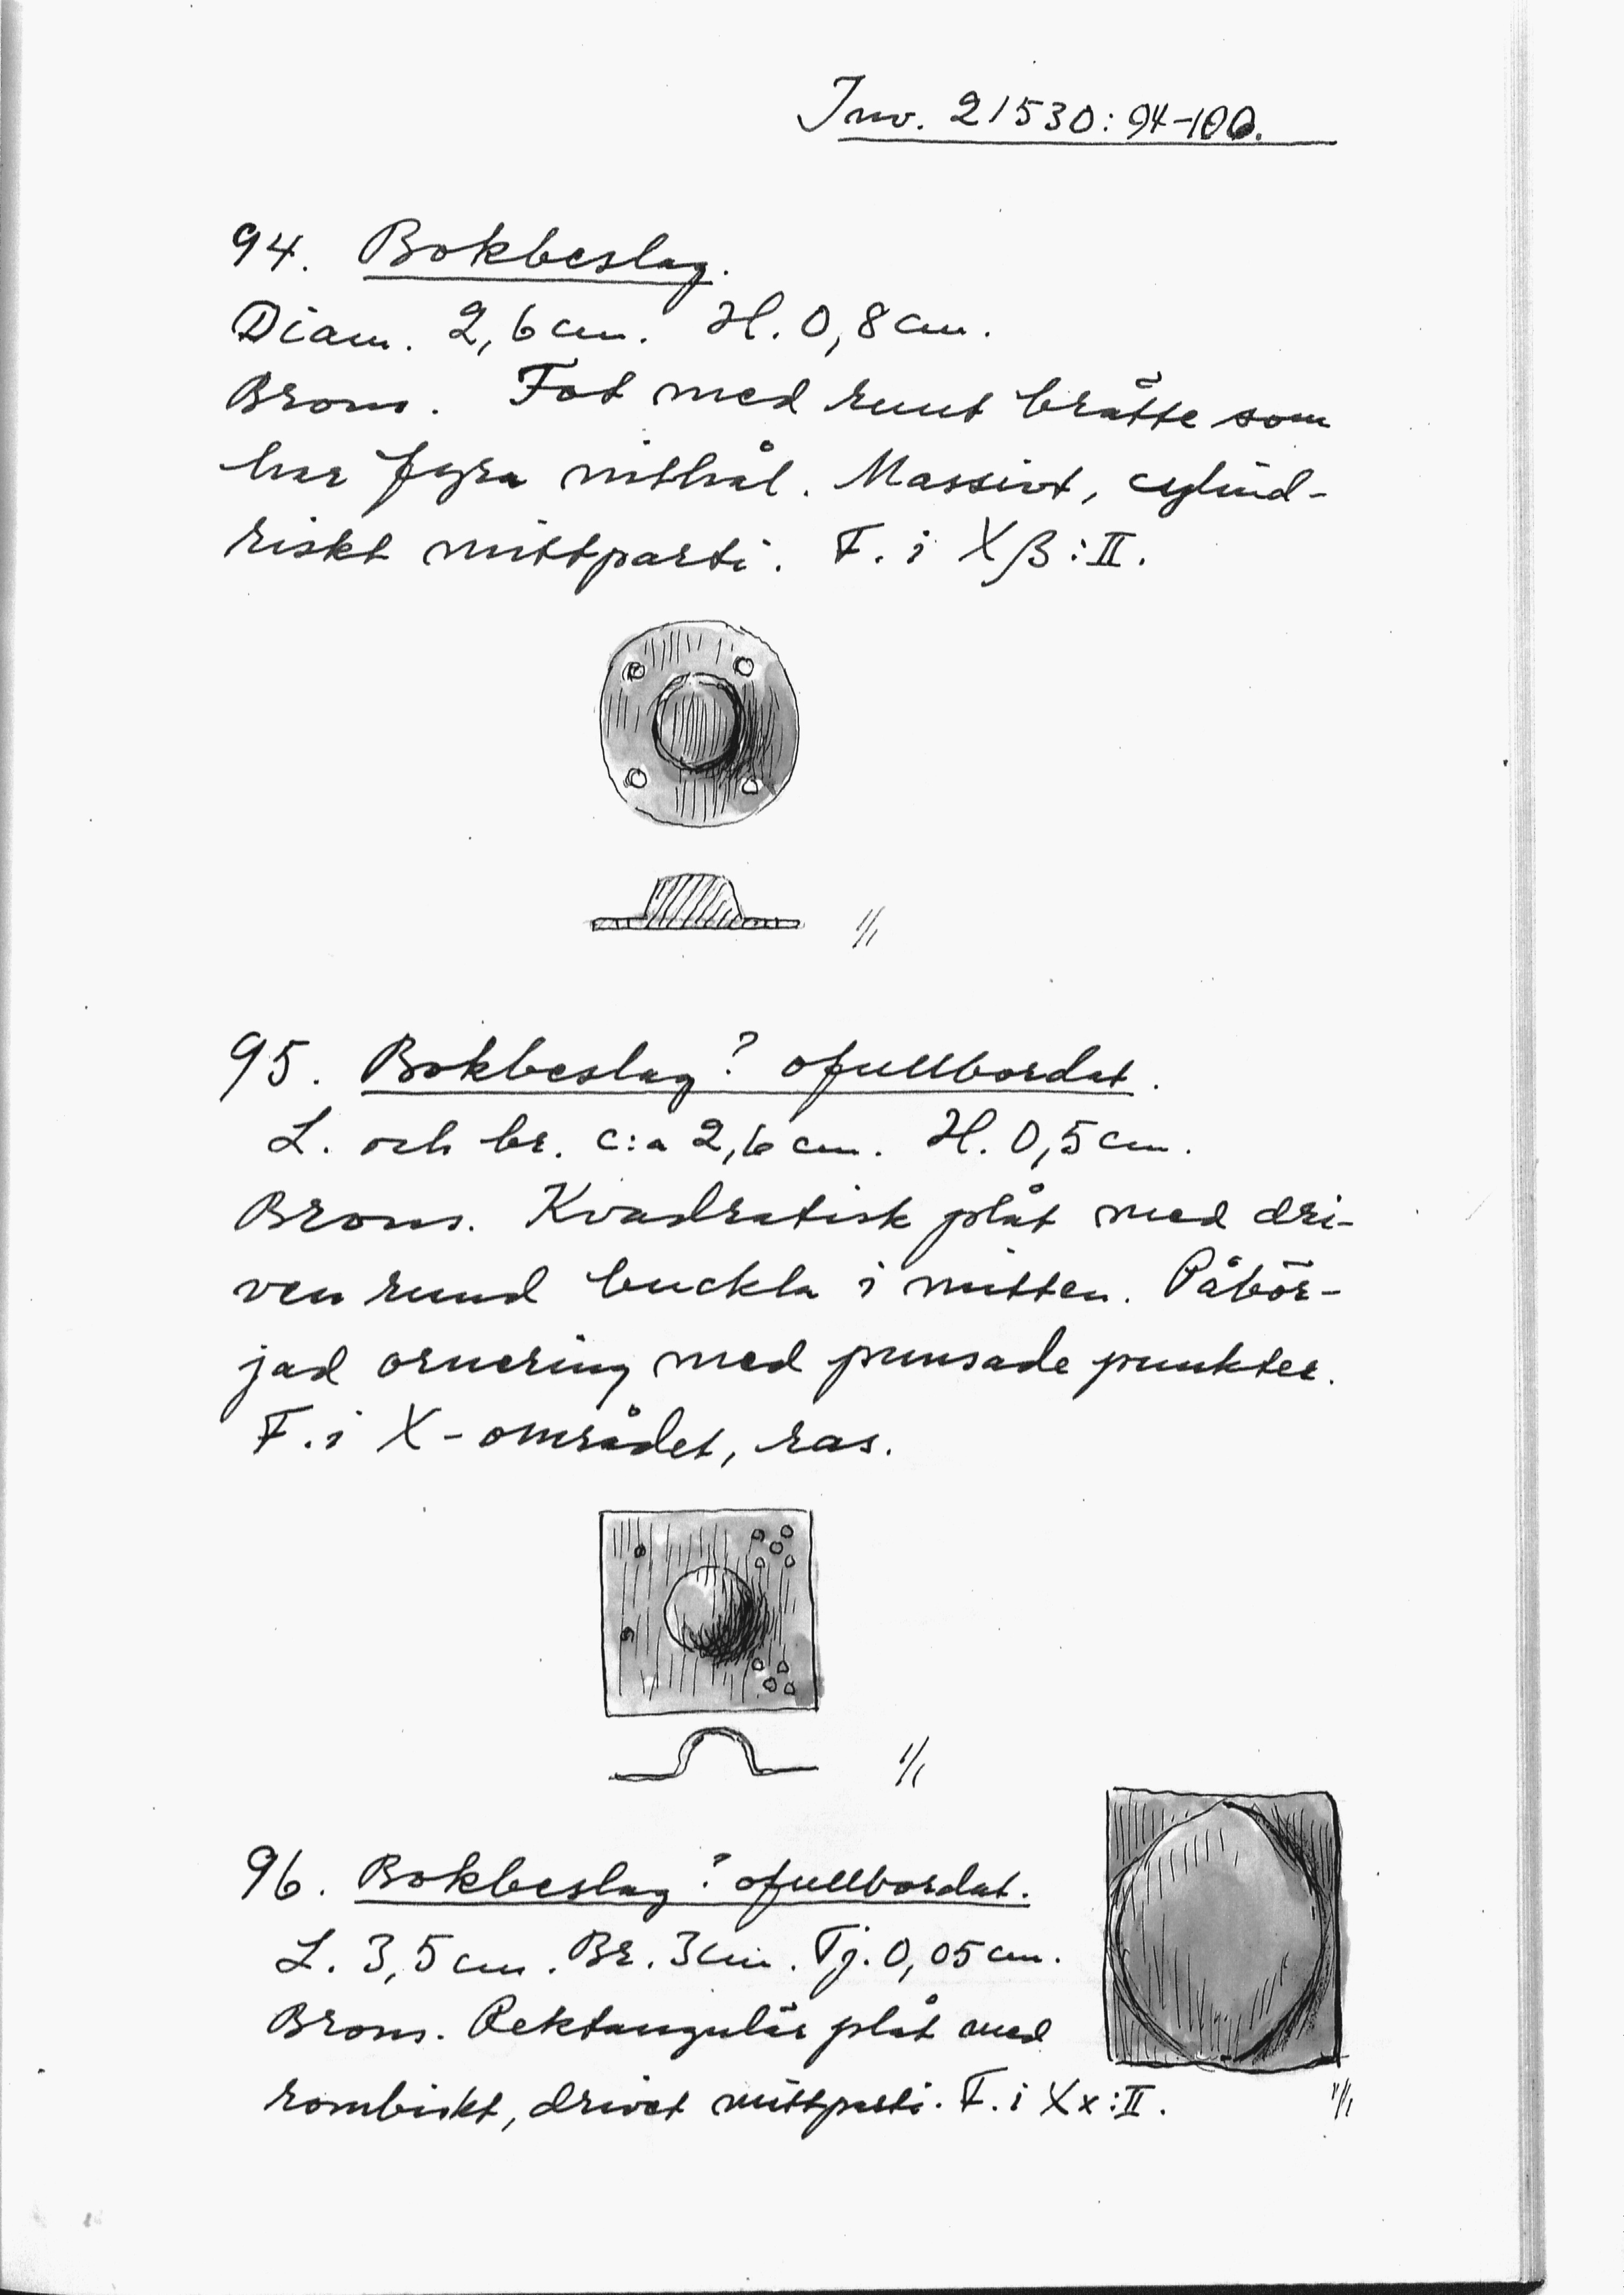 Inv. 21530:94-100.
94. Bokbeslag.
Diam. 2,6 cm. H. 0,8 cm.
Brons. Fat med runt brätte som
har fyra nithål. Massivt, cylind-
riskt mittparti. F. i Xβ:II.
1/1
95. Bokbeslag? ofullbordat.
L. och br. c:a 2,6 cm. H. 0,5 cm.
Brons. Kvadratisk plåt med dri-
ven rund buckla i mitten. Påbör-
jad ornering med punsade punkter.
F. i X-området, ras.
1/1
96. Bokbeslag? ofullbordat.
L. 3,5 cm. Br. 3 cm. Tj. 0,05 cm.
Brons. Rektangulär plåt med
rombiskt, drivet mittparti. F. i Xx:II.
1/1